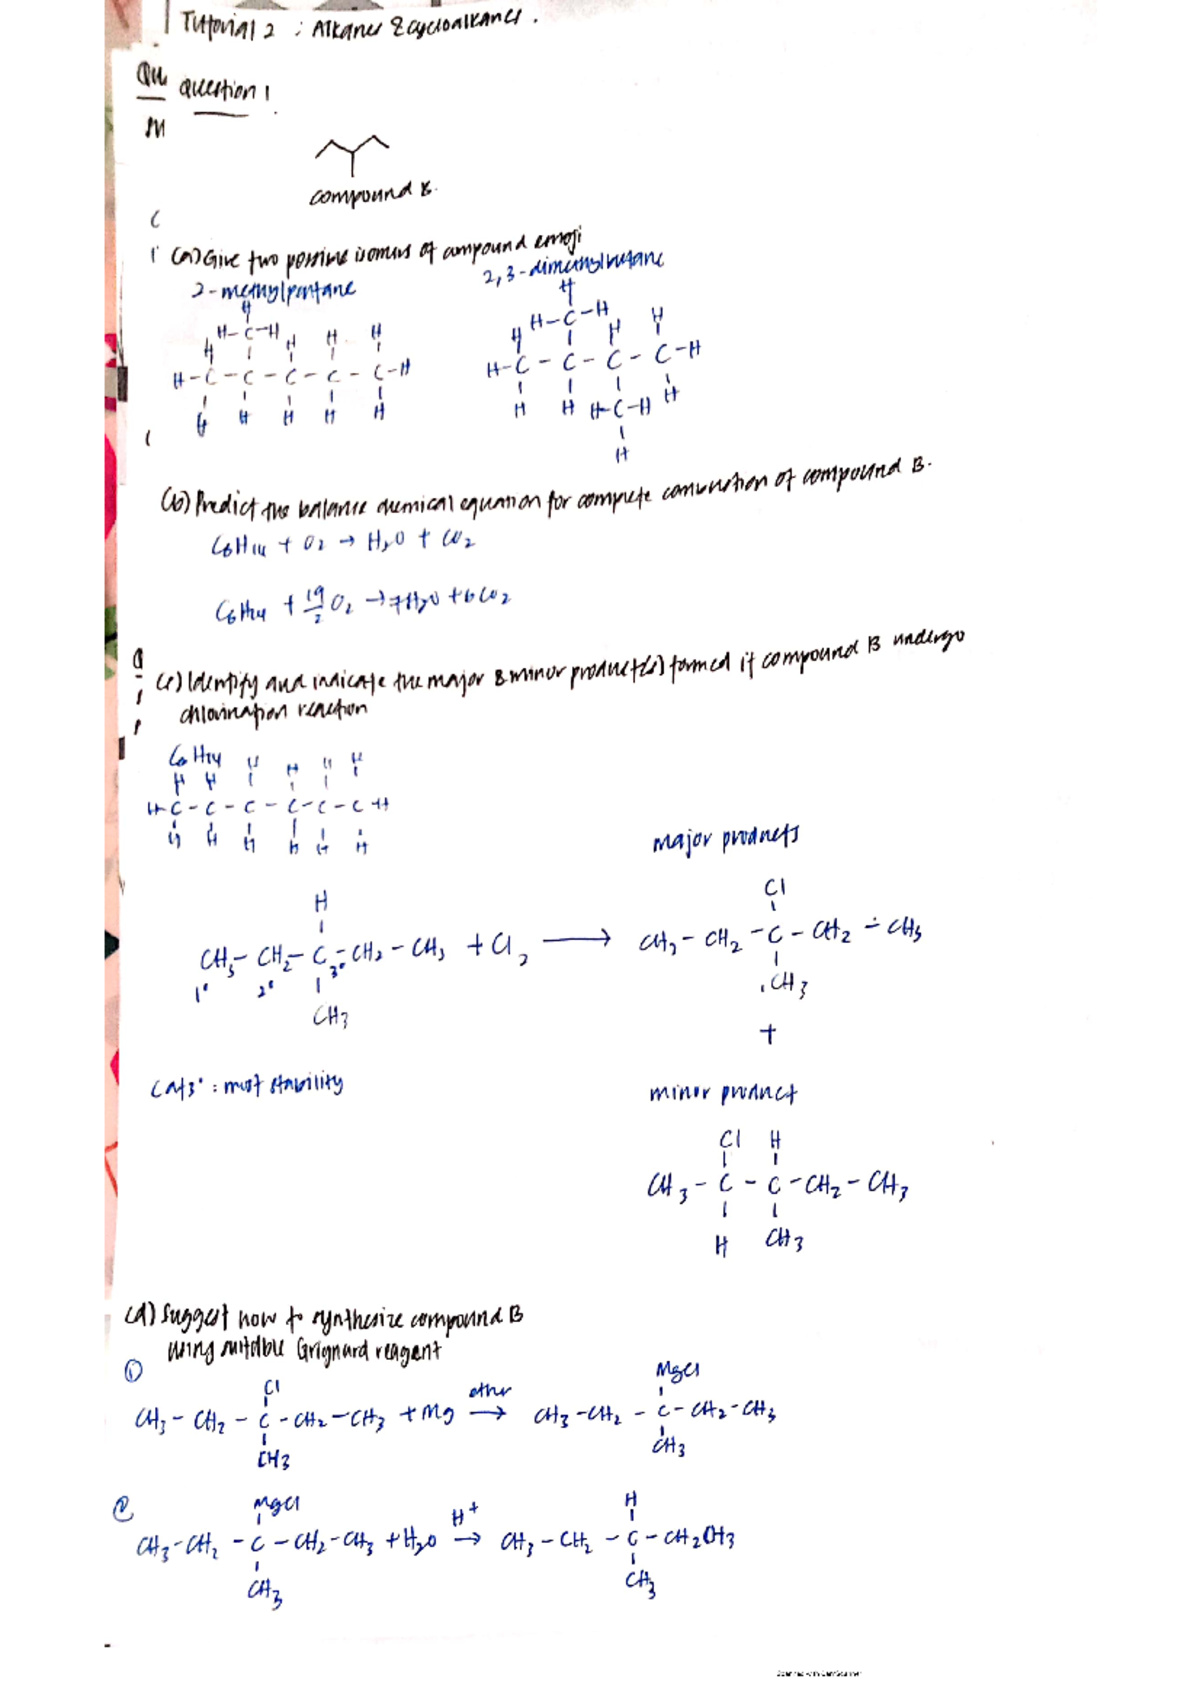 Tutorial 2 : Alkanes & cycloalkanes.
Qu
question 1
M
compound B.
(
1 (a) Give two possible isomers of compound emoji
2-methylpentane 2,3-dimethylbutane
H
H-C-H
H H H H
H-C-C-C-C-C-H
H H H H H
H
H-C-H
H H H
H-C-C-C-C-H
H H H-C-H H
H
(b) Predict the balance chemical equation for complete combustion of compound B.
C6H14 + O2 → H2O + CO2
C6H14 + 19/2 O2 → 7H2O + 6CO2
(c) Identify and indicate the major & minor product(s) formed if compound B undergo
chlorination reaction
C6H14
H H H H H H
H-C-C-C-C-C-C-H
H H H H H H
major products
H Cl
CH3-CH2-C-CH2-CH3 + Cl2 → CH3-CH2-C-CH2-CH3
1° 2° 3°
CH3 CH3
+
3° : most stability
minor product
Cl H
CH3-C-C-CH2-CH3
H CH3
(d) Suggest how to synthesize compound B
using suitable Grignard reagent
①
Cl MgCl
CH3-CH2-C-CH2-CH3 + Mg ether → CH3-CH2-C-CH2-CH3
CH3 CH3
②
MgCl H
CH3-CH2-C-CH2-CH3 + H2O H+ → CH3-CH2-C-CH2CH3
CH3 CH3
Scanned with CamScanner